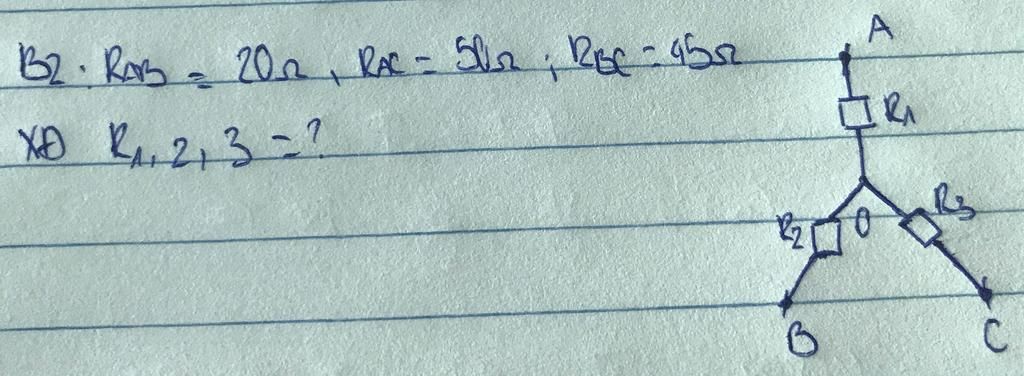 B2: RAB = 20Ω, RAC = 50Ω; RBC = 45Ω
XĐ R1, 2, 3 = ?
A
R1
R2
O
R3
B
C